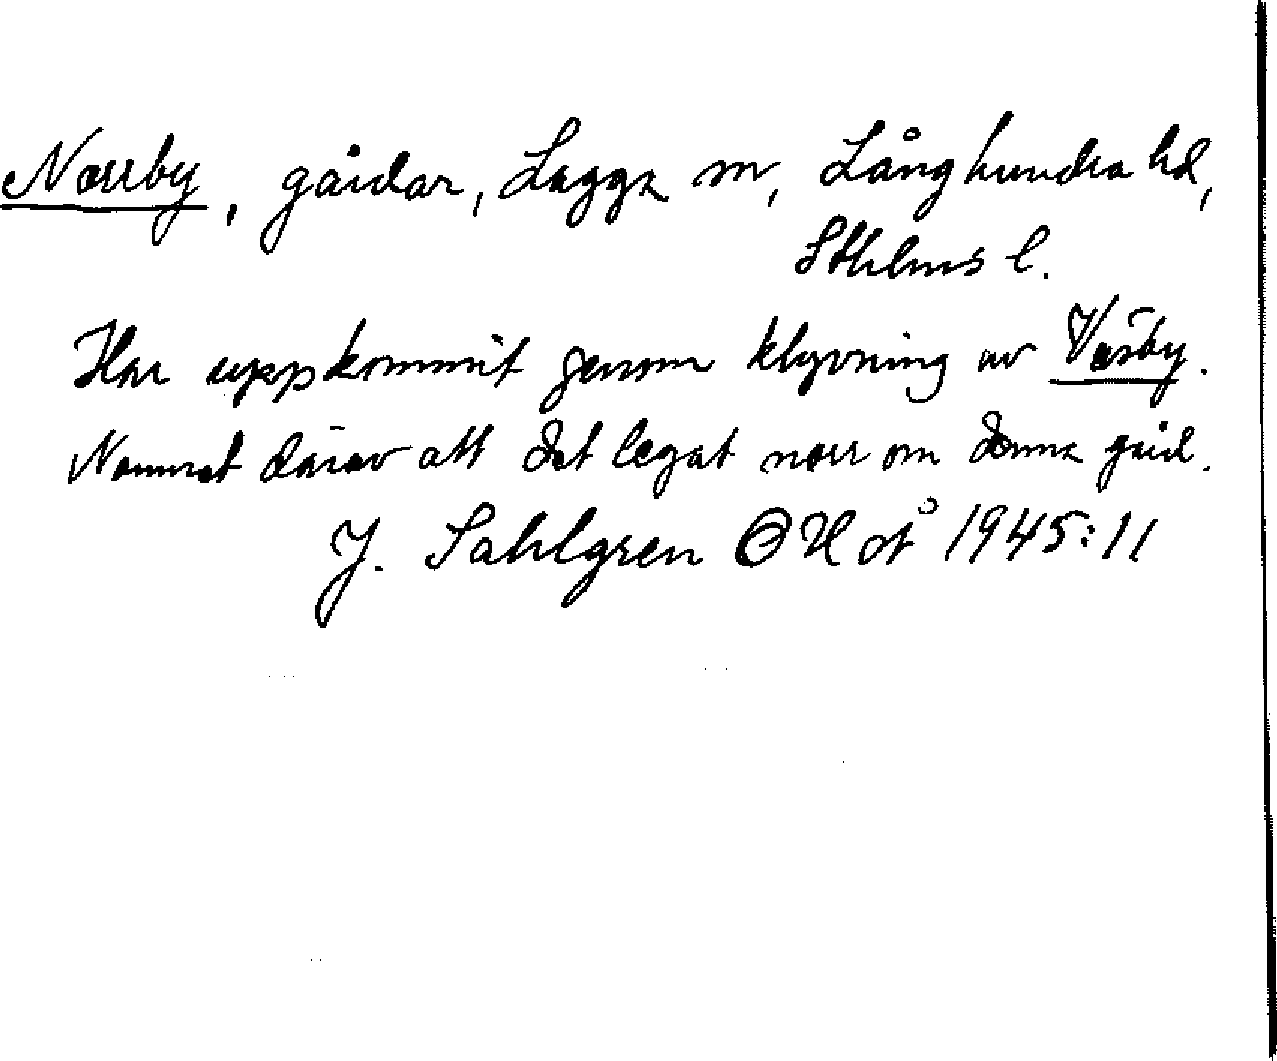 Norrby, gårdar, Lagga sn, Långhundra hd,
Sthlms l.
Har uppkommit genom klyvning av Väsby.
Namnet därav att det legat norr om denna gård.
J. Sahlgren OUoÅ 1945:11